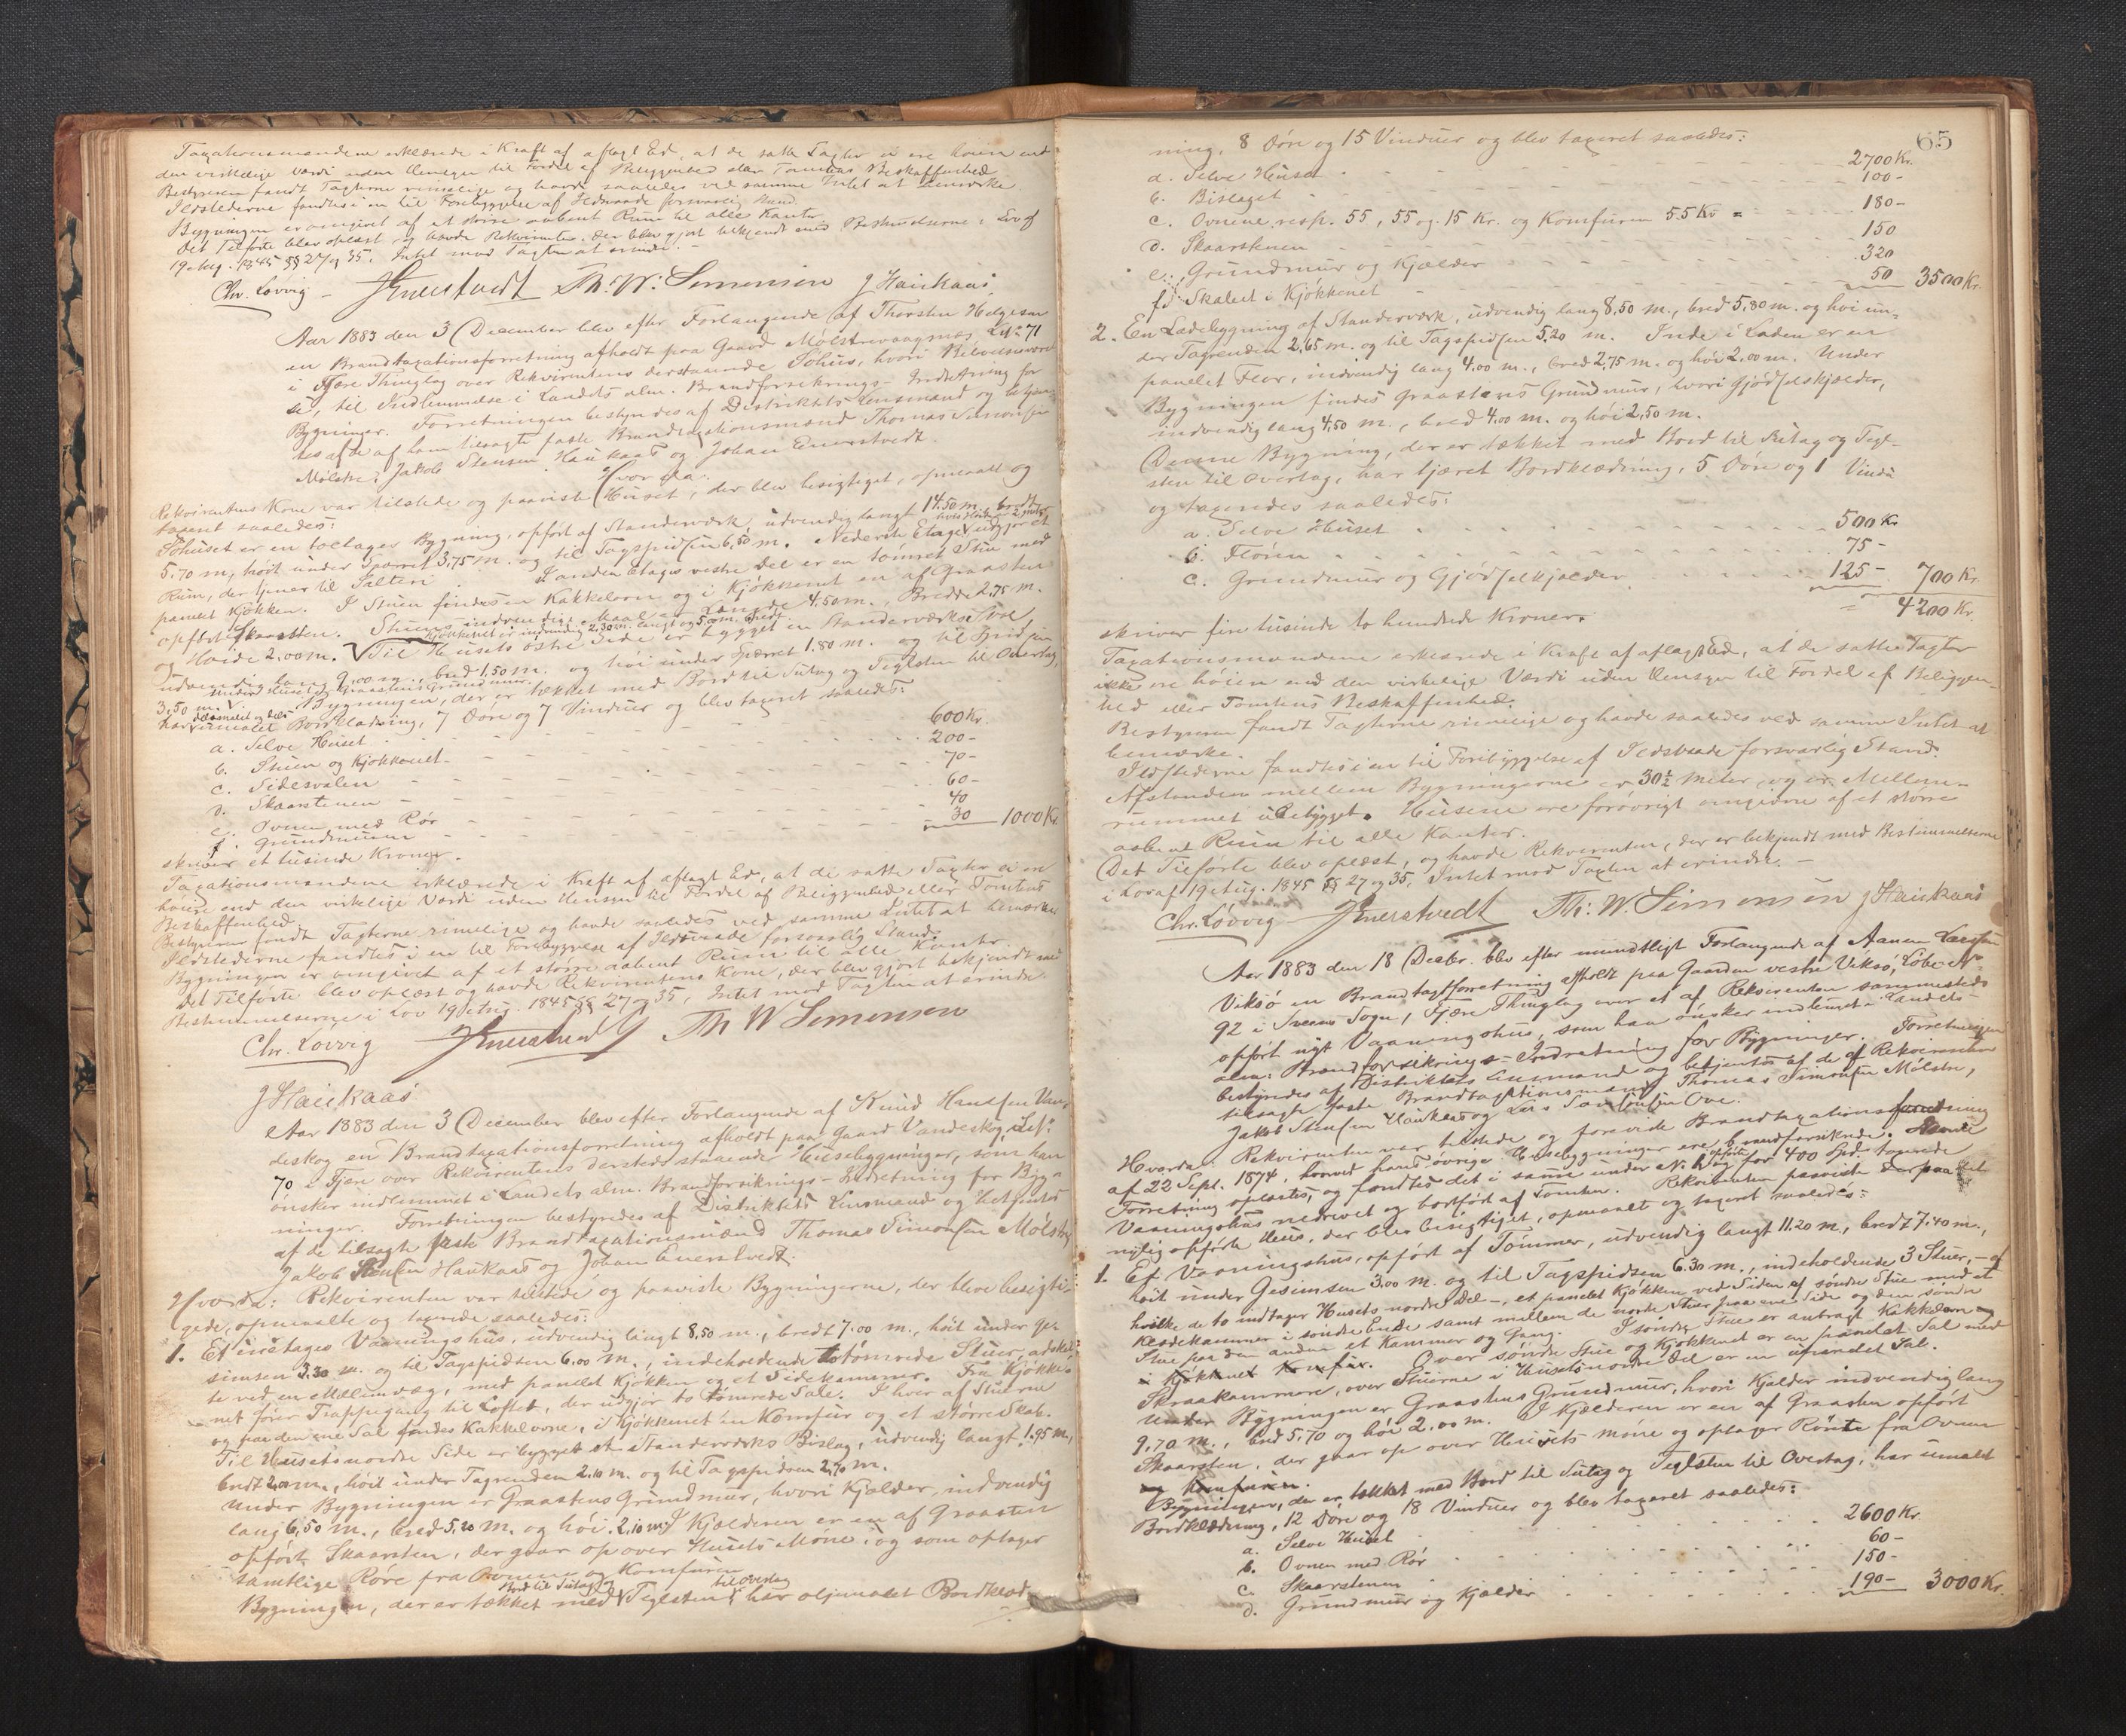 Taxationsmændene erklærede i Kraft af aflagt Ed, at de satte Taxter ei ere høiere end
den virkelige Værdi uden Hensyn til Fordel af Beliggenhed eller Tomtens Beskaffenhed
Bestyreren fandt Taxterne rimelige og havde saaledes ved samme Intet at bemærke
Ildstederne fandtes i en til Forebyggelse af Ildsvaade forsvarlig Stand.
Bygningen er omgivet af et større aabent Rum til alle Kanter
Det Tilførte blev oplæst og havde Rekvirenten, der blev gjort bekjendt med Bestemmelserne i Lov af
19 Aug. 1845 §§ 27 og 35, Intet mod Taxten at erindre. -
Chr. Løvvig - JEnerstvedt Th. W. Simonsen J Haukaas
Aar 1883 den 3 December blev efter Forlangende af Thorsten Helgesen
en Brandtaxationsforretning afholdt paa Gaard Mølstrevaagnæs, Lnr. 71
i Fjære Thinglag over Rekvirentens derstaaende Søhus, hvori Beboelsesværel-
se, til Indlemmelse i Landets alm. Brandforsikrings-Indretning for
Bygninger. Forretningen bestyredes af Distriktets Lensmand og betjen-
tes af de af ham tilsagte faste Brandtaxationsmænd Thomas Simonsen
Mølstre, Jakob Stensen Haukaas og Johan Enerstvedt.
Hvorda:
Rekvirentens Kone var tilstede og paaviste Huset, der blev besigtiget, opmaalt og
taxeret saaledes:
Søhuset er en toetages Bygning, opført af Standerværk, udvendig langt 14.50 m., bredt
5.70 m, høit under Sparret 3,75 m. og til Tagspidsen 6,50 m. Nederste Etage udgjør et
Rum, der tjener til Salteri. I anden Etages vestre Del er en tømret Stue med
panelet Kjøkken. I Stuen findes en Kakkelovn og i Kjøkkenet en af Graasten
opført Skaarsten. Stuens indvendige Maal er Længde 4,50 m., Bredde 2,75 m.
Kjøkkenet er indvendig 2,30 m. langt og 5,00 m. bredt.
og Høide 2,00 m. Til Husets østre Side er bygget en Standerværks Sval
udvendig lang 9,00 m., bred 1,50 m. og høi under Sparret 1.80 m. og til Spidsen
Under Huset er Graastens Grundmur.
3,50 m. Bygningen, der er tækket med Bord til Sutag og Teglsten til Overtag,
har delsmalet og dels umalet Bordklædning, 7 Døre og 7 Vinduer og blev taxeret saaledes:
a. Selve Huset 600 Kr.
b. Stuen og Kjøkkenet 200 -
c. Sidesvalen 70 -
d. Skaarstenen 60 -
e. Ovnen med Rør 40
f. Grundmuren 30 1000 Kr.
skriver et tusinde Kroner.
Taxationsmændene erklærede i Kraft af aflagt Ed, at de satte Taxter ei ere
høiere end den virkelige Værdi uden Hensyn til Fordel af Beliggenhed eller Tomtens
Beskaffenhed
Bestyreren fandt Taxterne rimelige og havde saaledes ved samme Intet at bemærke
Ildstederne fandtes i en til Forebyggelse af Ildsvaade forsvarlig Stand.
Bygningen er omgivet af et større aabent Rum til alle Kanter.
Det Tilførte blev oplæst og havde Rekvirentens Kone, der blev gjort bekjendt med
Bestemmelserne i Lov 19 Aug. 1845 §§ 27 og 35, Intet mod Taxten at erindre.
Chr. Løvvig JEnerstvedt Th W Simonsen
J Haukaas
Aar 1883 den 3 December blev efter Forlangende af Knud Hansen Van-
deskog en Brandtaxationsforretning afholdt paa Gaard Vandeskog, Lnr.
70 i Fjære over Rekvirentens dersteds staaende Husebygninger, som han
ønsker indlemmet i Landets alm. Brandforsikrings-Indretning for Byg-
ninger. Forretningen bestyredes af Distriktets Lensmand og betjentes
af de tilsagte faste Brandtaxationsmænd Thomas Simonsen Mølstre,
Jakob Stensen Haukaas og Johan Enerstvedt.
Hvorda: Rekvirenten var tilstede og paaviste Bygningerne, der bleve besigti-
gede, opmaalte og taxerede saaledes:
1. Et enetages Vaaningshus, udvendig langt 8,50 m., bredt 7.00 m., høit under Ge-
simsen 3.30 m. og til Tagspidsen 6.00 m., indeholdende to tømrede Stuer, adskil-
te ved en Mellemvæg, med panelet Kjøkken og et Sidekammer. Fra Kjøkke-
net fører Trappegang til Loftet, der udgjør to tømrede Sale. I hver af Stuerne
og paa den ene Sal findes Kakkelovne, i Kjøkkenet en Komfur og et større Skab.
Til Husets nordre Side er bygget et Standerværks Bislag, udvendig langt 1.95 m.,
bredt 2,00 m., høit under Tagrenden 2.10 m. og til Tagspidsen 2,70 m.
Under Bygningen er Graastens Grundmur, hvori Kjælder, indvendig
lang 6,50 m., bred 5.20 m. og høi 2.10 m. I Kjælderen er en af Graasten
opført Skaarsten, der gaar op over Husets Møne, og som optager
samtlige Røre fra Ovnene og Komfuren
Bygningen, der er tækket med Bord til Sutag og Teglsten til Overtag, har oljemalet Bordklæd-
65
ning, 8 Døre og 15 Vinduer og blev taxeret saaledes:
a. Selve Huset 2700 Kr.
b. Bislaget 100 -
c. Ovnene resp. 55, 55 og 15 Kr. og Komfuren 55 Kr = 180 -
d. Skaarstenen 150
e. Grundmur og Kjælder 320
f. Skabet i Kjøkkenet 50 3500 Kr.
2. En Ladebygning af Standerværk, udvendig lang 8,50 m., bred 5,80 m. og høi un-
der Tagrenden 2,65 m. og til Tagspidsen 5.20 m. Inde i Laden er en
panelet Flor, indvendig lang 4.00 m., bred 2,75 m. og høi 2.00 m. Under
Bygningen findes Graastens Grundmur, hvori Gjødselskjælder,
indvendig lang 4,50 m., bred 4.00 m. og høi 2,50 m.
Denne Bygning, der er tækket med Bord til Sutag og Tegl-
sten til Overtag, har tjæret Bordklædning, 5 Døre og 1 Vindu
og taxeredes saaledes:
a. Selve Huset 500 Kr
b. Floren 75 -
c. Grundmur og Gjødselkjælder 125 - 700 Kr.
= 4200 Kr
skriver fire tusinde to hundrede Kroner.
Taxationsmændene erklærede i Kraft af aflagt Ed, at de satte Taxter
ikke ere høiere end den virkelige Værdi uden Hensyn til Fordel af Beliggen-
hed eller Tomtens Beskaffenhed.
Bestyreren fandt Taxterne rimelige og havde saaledes ved samme Intet at
bemærke.
Ildstederne fandtes i en til Forebyggelse af Ildsvaade forsvarlig Stand.
Afstanden mellem Bygningerne er 30½ Meter og er Mellem-
rummet ubebygget. Husene ere forøvrigt omgivne af et større
aabent Rum til alle Kanter.
Det Tilførte blev oplæst, og havde Rekvirenten, der er bekjendt med Bestemmelserne
i Lov af 19 Aug. 1845 §§ 27 og 35, Intet mod Taxten at erindre. -
Chr. Løvvig JEnerstvedt Th. W. Simonsen J Haukaas
Aar 1883 den 18 Decbr. blev efter mundtligt Forlangende af Aanen Larsen
Viksø en Brandtaxtforretning afholdt paa Gaarden vestre Viksø, Løbe No
92 i Sveens Sogn, Fjære Thinglag over et af Rekvirenten sammesteds
opført nyt Vaaningshus, som han ønsker indlemmet i Landets
alm. Brandforsikrings-Indretning for Bygninger. Forretningen
bestyredes af Distriktets Lensmand og betjentes af de af Rekvirenten
tilsagte faste Brandtaxtionsmænd Thomas Simonsen Mølstre,
Jakob Stensen Haukaas og Lars Ove.
Hvorda: Rekvirenten var tilstede og foreviste Brandtaxationsforretning
af 22 Sept. 1874, hvorved hans øvrige Husebygninger ere brandforsikrede.
Forretning oplæstes, og fandtes det i samme under No. 1 opførte og for 400 Spd. taxerede
Vaaningshus nedrevet og bortført af Tomten. Rekvirenten paaviste derpaa sit
nylig opførte Hus, der blev besigtiget, opmaalt og taxeret saaledes:
1. Et Vaaningshus, opført af Tømmer, udvendig langt 11.20 m., bredt 7.40 m.,
høit under Gesimsen 3.00 m. og til Tagspidsen 6.30 m., indeholdende 3 Stuer, - af
hvilke de to indtager Husets nordre Del -, et panelet Kjøkken ved Siden af søndre Stue med et
Klædekammer i søndre Ende samt mellem de nordre Stuer paa ene Side og den søndre
Stue paa den anden et Kammer og Gang. I søndre Stue er anbragt Kakkelovn og
i Kjøkkenet Komfur. Over søndre Stue og Kjøkkenet er en panelet Sal med
Skraakammere, over Stuerne i Husets nordre Del er en upanelet Sal.
Under Bygningen er Graastens Grundmur, hvori Kjælder indvendig lang
9.70 m., bred 5.70 og høi 2.00 m. I Kjælderen er en af Graasten opført
Skaarsten, der gaar op over Husets Møne og optager Rørene fra Ovnen
og Komfuren.
Bygningen, der er tækket med Bord til Sutag og Teglsten til Overtag, har umalet
Bordklædning, 12 Døre og 18 Vinduer og blev taxeret saaledes:
a. Selve Huset 2600 Kr.
b. Ovnen med Rør 60 -
c. Skaarstenen 150 -
d. Grundmur og Kjælder 190 - 3000 Kr.